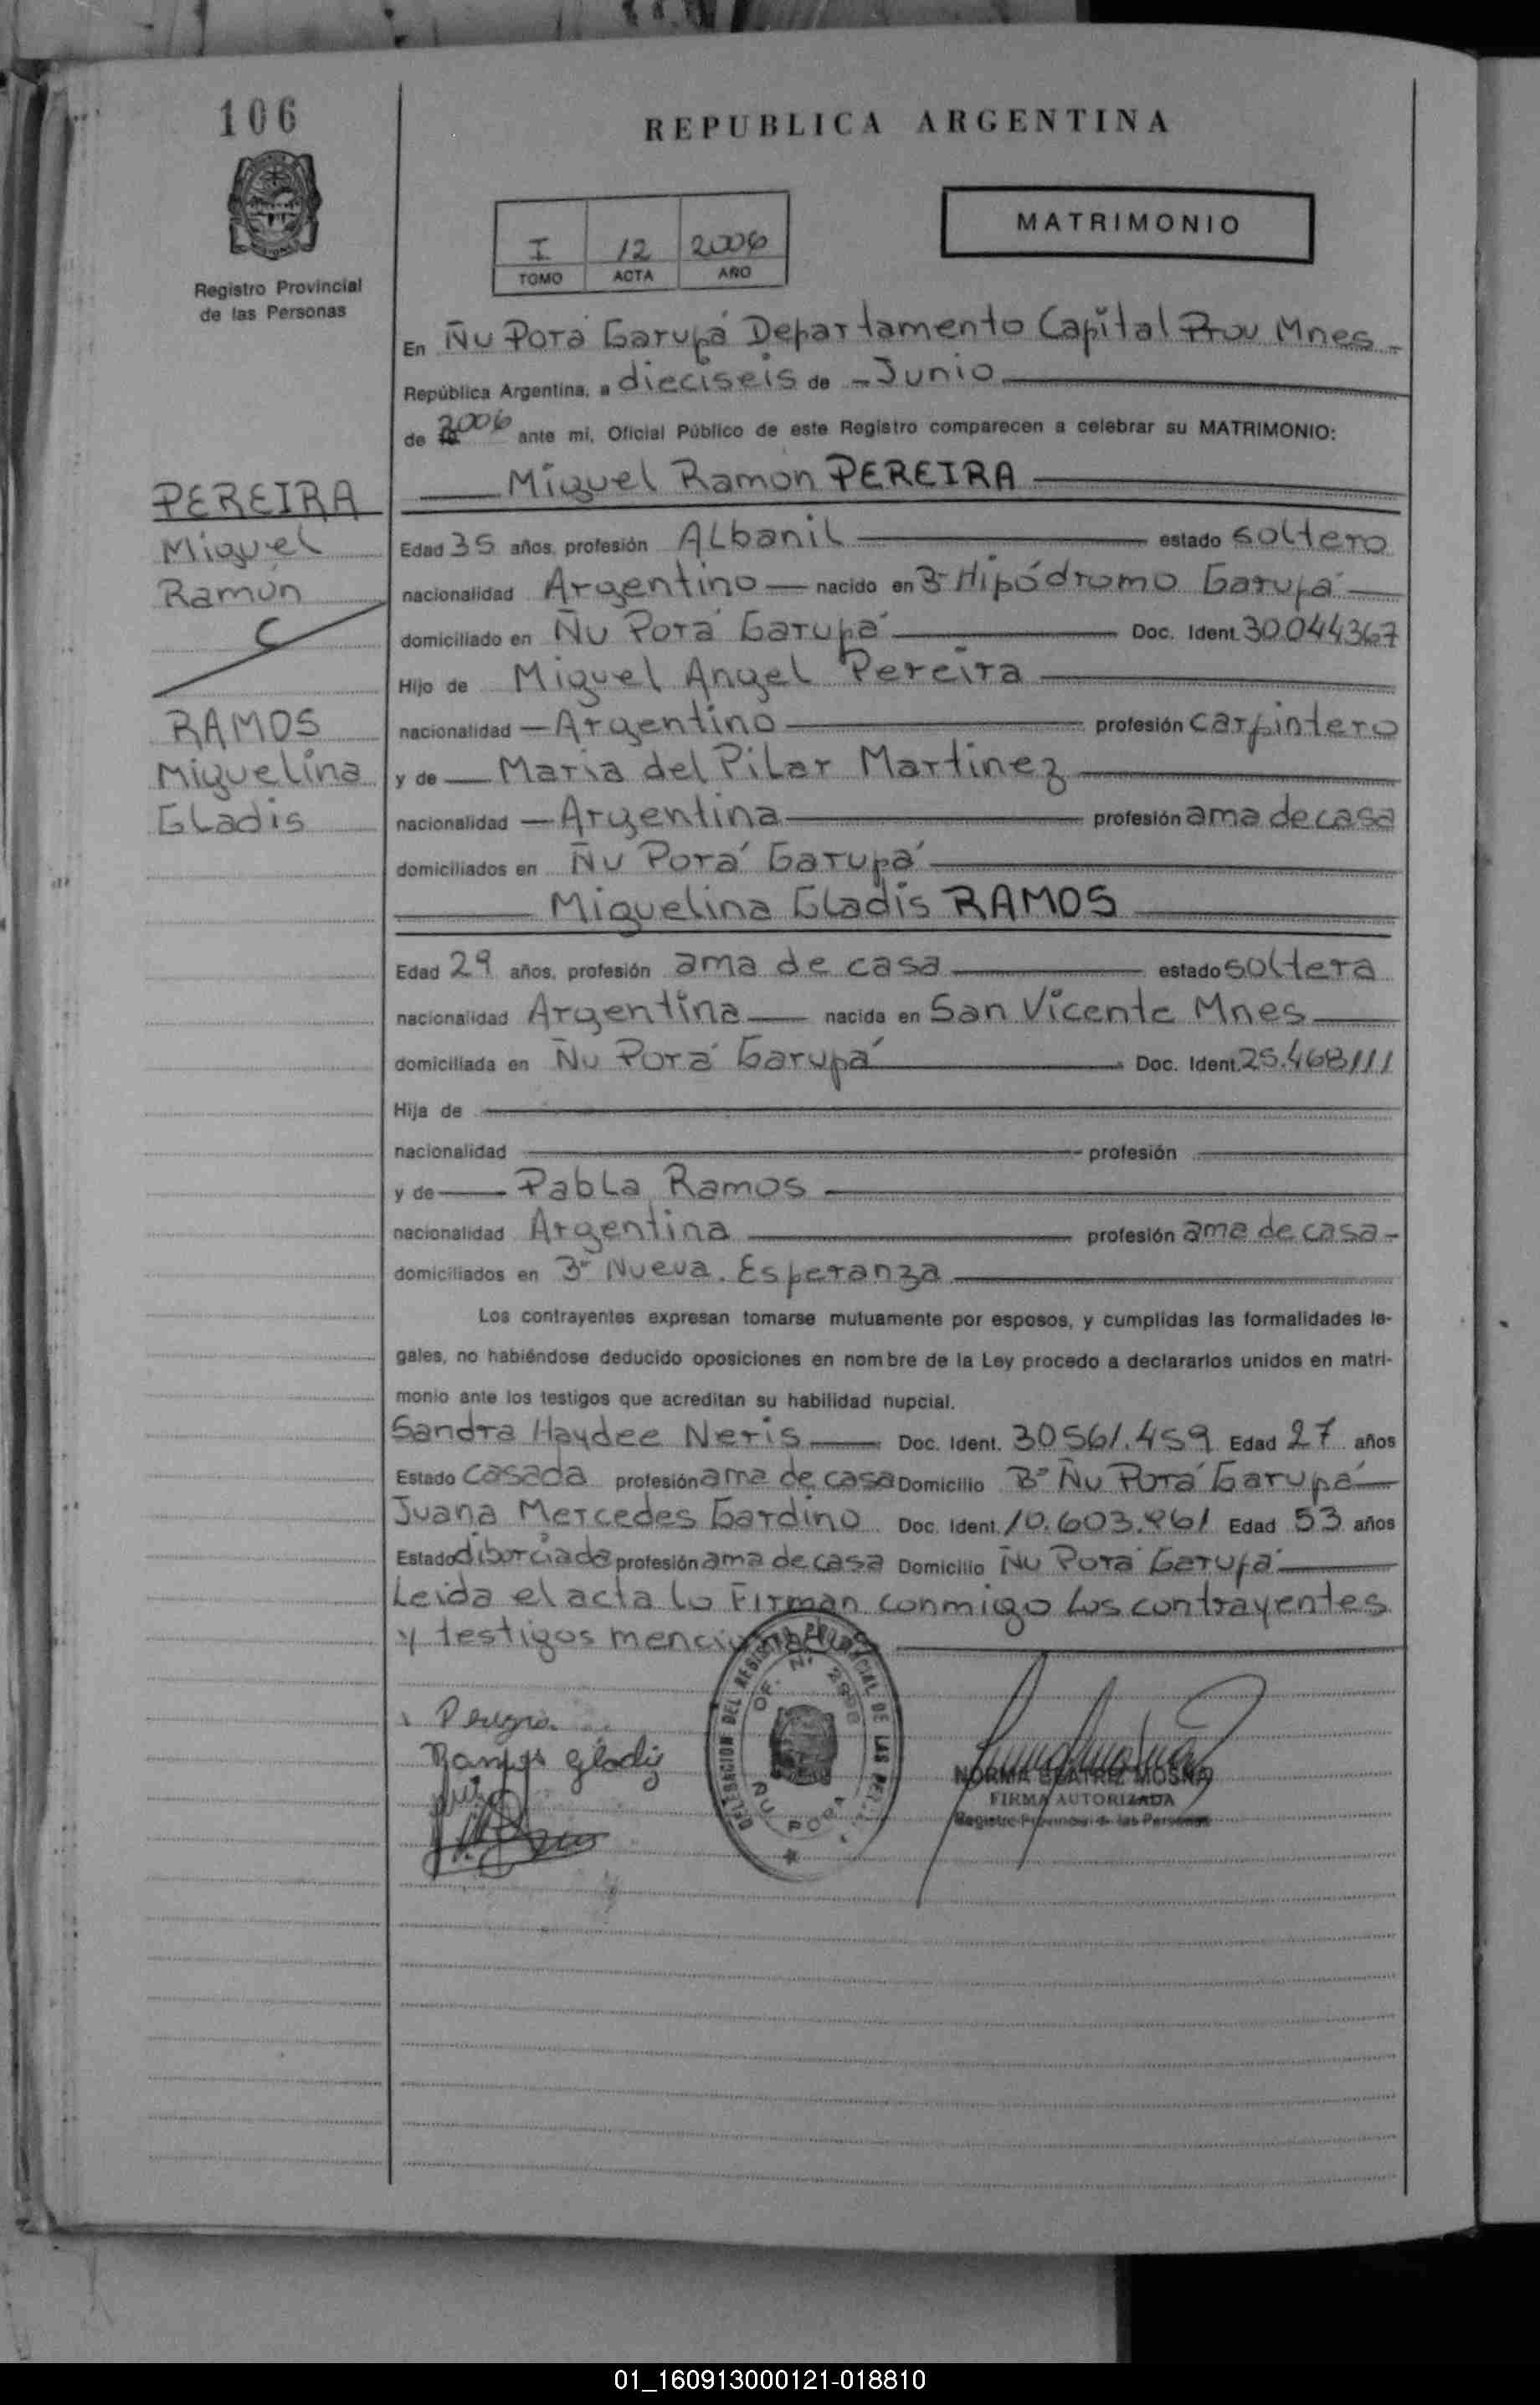 106
REPUBLICA ARGENTINA
MATRIMONIO
I 12 2006
TOMO ACTA AÑO
Registro Provincial
de las Personas
En Ñu Porá Garupá Departamento Capital Prov Mnes.
República Argentina, a dieciseis de Junio
de 2006 ante mi, Oficial Público de este Registro comparecen a celebrar su MATRIMONIO:
Miguel Ramón PEREIRA
PEREIRA
Miguel
Ramón
Edad 35 años, profesión Albanil estado soltero
nacionalidad Argentino nacido en Bº Hipódromo Garupá
domiciliado en Ñu Porá Garupá Doc. Ident. 30.044367
Hijo de Miguel Angel Pereira
nacionalidad Argentino profesión carpintero
y de Maria del Pilar Martinez
nacionalidad Argentina profesión ama de casa
domiciliados en Ñu Porá Garupá
RAMOS
Miguelina
Gladis
Miguelina Gladis RAMOS
Edad 29 años, profesión ama de casa estado soltera
nacionalidad Argentina nacida en San Vicente Mnes
domiciliada en Ñu Porá Garupá Doc. Ident. 25.468111
Hija de
nacionalidad profesión
y de Pabla Ramos
nacionalidad Argentina profesión ama de casa
domiciliados en Bº Nueva Esperanza
Los contrayentes expresan tomarse mutuamente por esposos, y cumplidas las formalidades le-
gales, no habiéndose deducido oposiciones en nombre de la Ley procedo a declararlos unidos en matri-
monio ante los testigos que acreditan su habilidad nupcial.
Sandra Haydee Neris Doc. Ident. 30561.459 Edad 27 años
Estado casada profesión ama de casa Domicilio Bº Ñu Porá Garupá
Juana Mercedes Gardino Doc. Ident. 10.603.961 Edad 53 años
Estado diborciada profesión ama de casa Domicilio Ñu Porá Garupá
Leida el acta lo Firman conmigo los contrayentes
y testigos mencionados
Ramos Gladis
DELEGACION DEL REGISTRO PROVINCIAL DE LAS PER.
OF. Nº
ÑU PORA
NORMA BEATRIZ MOSNA
FIRMA AUTORIZADA
Registro Provincial de las Personas
01_160913000121-018810